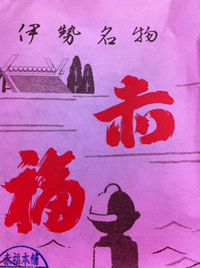 伊勢名物
赤福
赤福本舗